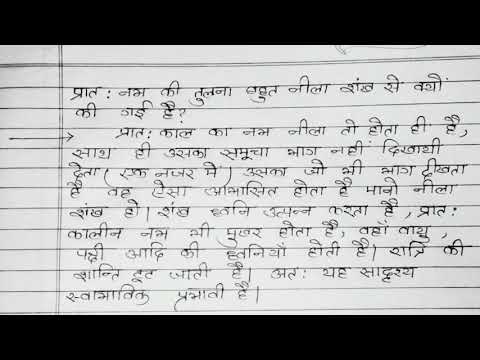 प्रात : नभ की तुलना बहुत नीला शंख से क्यों
की गई है?
प्रात: काल का नभ नीला तो होता ही है,
साथ ही उसका समूचा भाग नहीं दिखायी
देता ( एक नजर में ) उसका जो भी भाग दीखता
है वह ऐसा आभासित होता है मानो नीला
शंख हो। शंख ध्वनि उत्पन्न करता है, प्रात:
कालीन नभ भी मुखर होता है, वहाँ वायु,
पक्षी आदि की ध्वनियाँ होती है। रात्रि की
शान्ति टूट जाती है। अत: यह सादृश्य
स्वाभाविक प्रभावी है।